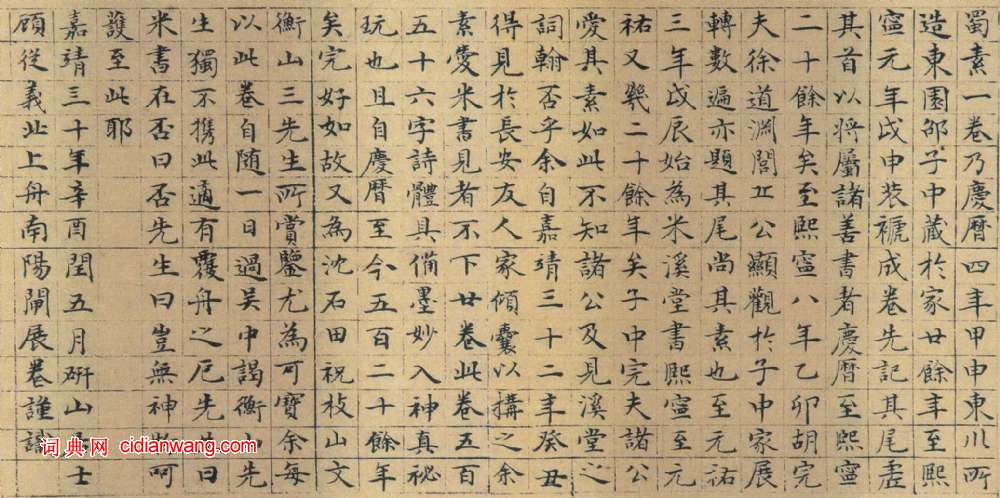 蜀素一卷乃慶曆四年甲申東川所
造東園邵子中藏於家廿餘年至熙
寧元年戊申装褫成卷先記其尾虛
其首以將屬諸善書者慶曆至熙寧
二十餘年矣至熙寧八年乙卯胡完
夫徐道淵閭丘公顯觀於子中家展
轉數遍亦題其尾尚其素也至元祐
三年戊辰始為米溪堂書熙寧至元
祐又幾二十餘年矣子中完夫諸公
愛其素如此不知諸公及見溪堂之
詞翰否乎余自嘉靖三十二年癸丑
得見於長安友人家傾囊以購之余
素愛米書見者不下廿卷此卷五百
五十六字詩體具備墨妙入神真祕
玩也且自慶曆至今五百二十餘年
矣完好如故又為沈石田祝枝山文
衡山三先生所賞鑒尤為可寶余每
以此卷自隨一日過吳中謁衡山先
生獨不攜此適有覆舟之厄先生曰
米書在否曰否先生曰豈無神物呵
護至此耶
嘉靖三十年辛酉閏五月研山居士
顧從義北上舟南陽閘展卷謹識
词典网 www.cidianwang.com